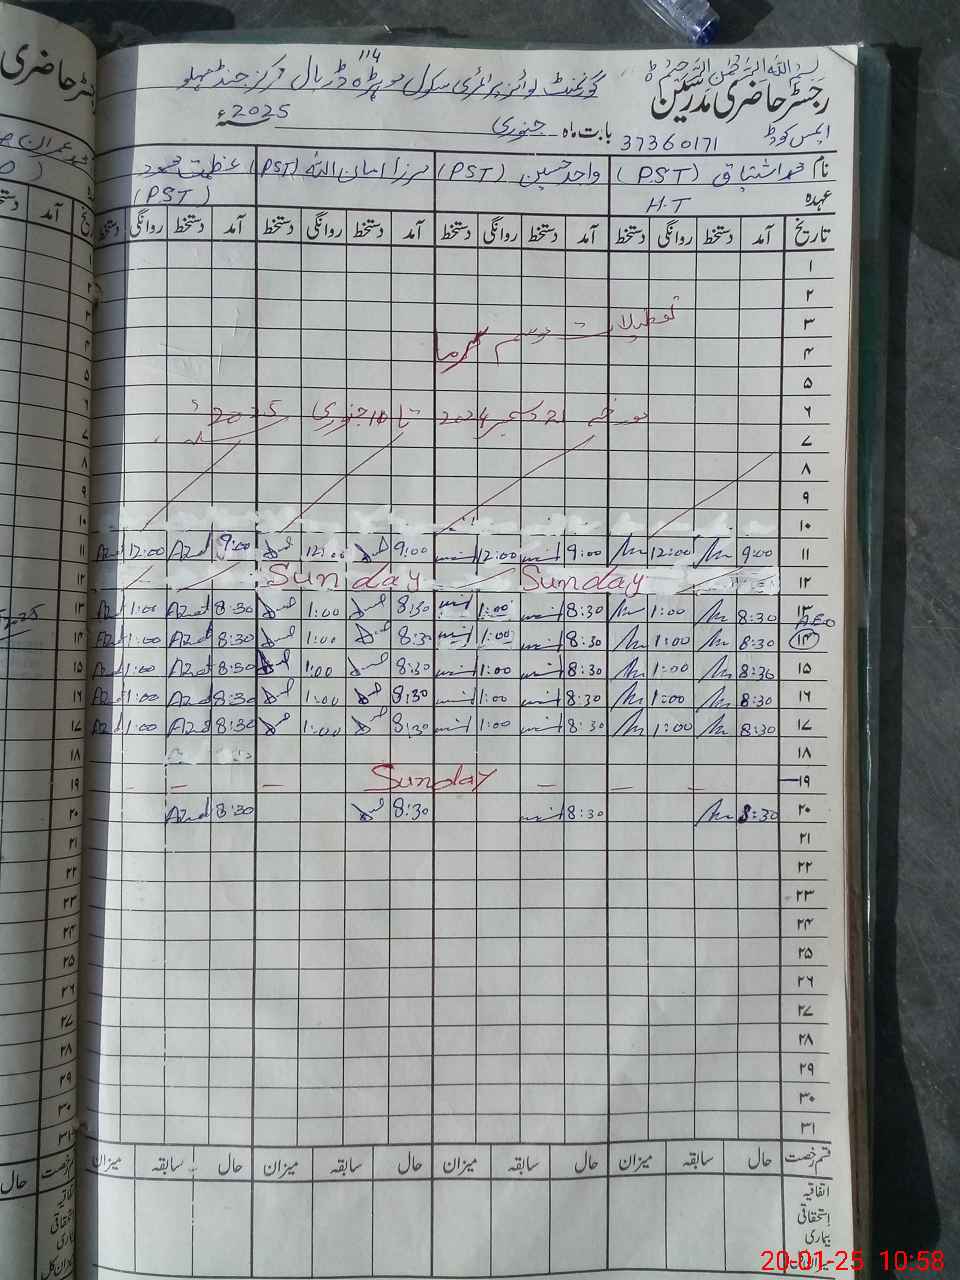 بسم اللہ الرحمٰن الرحیم
رجسٹر حاضری مدرسین
114
گورنمنٹ بوائز پرائمری سکول ڈریال مرکز جنڈ مہلو
ایمس کوڈ 37360171 بابت ماہ جنوری 2025ء
نام محمد اشتیاق (PST) واجد حسین (PST) مرزا امان اللہ (PST) عظمت محمود (PST)
عہدہ H.T
تاریخ آمد دستخط روانگی دستخط آمد دستخط روانگی دستخط آمد دستخط روانگی دستخط آمد دستخط روانگی دستخط
۱
۲
۳ تعطیلات موسم سرما
۴
۵
۶ مورخہ 21 دسمبر 2024 تا 10 جنوری 2025ء
۷
۸
۹
۱۰
۱۱ 9:00 12:00 9:00 12:00 9:00 12:00 9:00 Azd 12:00 Azd
۱۲ Sunday Sunday
۱۳ 8:30 1:00 8:30 1:00 8:30 1:00 8:30 Azd 1:00 Azd
AEO
۱۴ 8:30 1:00 8:30 1:00 8:30 1:00 8:30 Azd 1:00 Azd
۱۵ 8:30 1:00 8:30 1:00 8:30 1:00 8:30 Azd 1:00 Azd
۱۶ 8:30 1:00 8:30 1:00 8:30 1:00 8:30 Azd 1:00 Azd
۱۷ 8:30 1:00 8:30 1:00 8:30 1:00 8:30 Azd 1:00 Azd
۱۸
۱۹ Sunday
۲۰ 8:30 8:30 8:30 8:30 Azd
۲۱
۲۲
۲۳
۲۴
۲۵
۲۶
۲۷
۲۸
۲۹
۳۰
۳۱
قسم رخصت حال سابقہ میزان حال سابقہ میزان حال سابقہ میزان حال سابقہ میزان
اتفاقیہ
استحقاقی
بیماری
20-01-25 10:58